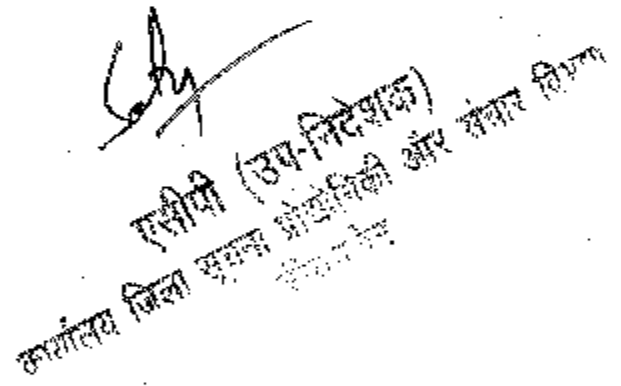 एसीपी (उप-निदेशक)
कार्यालय जिला सूचना प्रोद्योगिकी और संचार विभाग